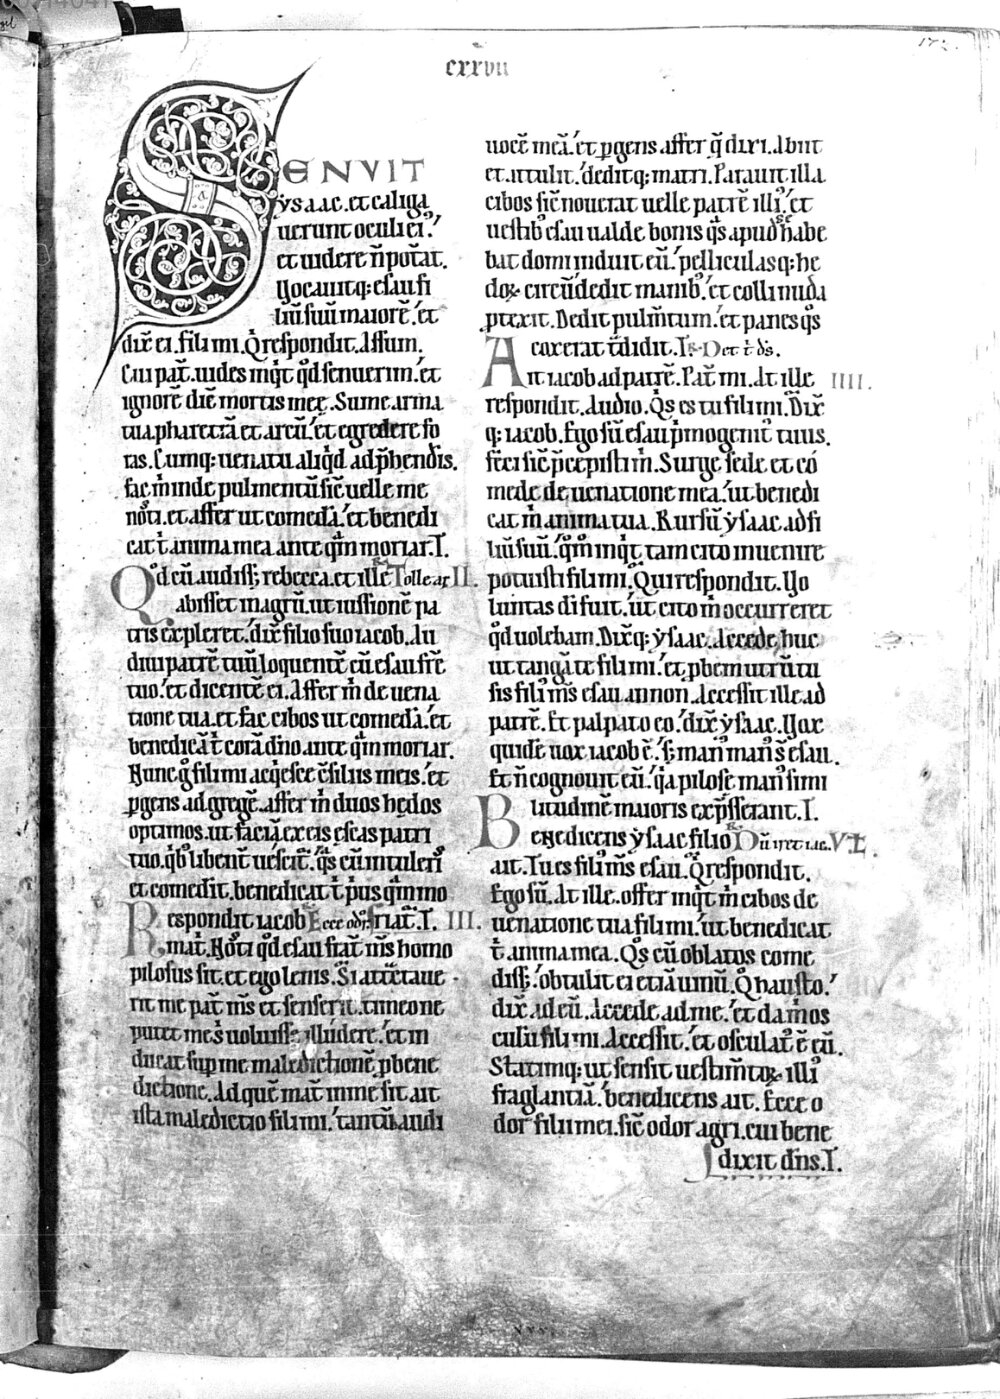 cxxvii
172.
SENVIT
ysaac. et caliga
uerunt oculi ei᾽.
et uidere n̄ pot̄at.
Vocauitq; esau fi
liū suū maiorē. et
dix̄ ei. fili mi. Q̇ respondit. Assum.
Cui pat̄. uides inq̇t q̇d senuerim. et
ignorē diē mortis meę. Sume arma
tua pharetrā et arcū. et egredere fo
ras. Cumq; uenatu aliq̇d adp̄hendis.
fac m̄ inde pulmentū sic̄ uelle me
nosti. et affer ut comedā. et benedi
cat t̄ anima mea ante q̄m moriar. I.
Qd̄ cū audiss; rebecca. et ille Tolle ar II.
abisset in agrū. ut iussionē pa
tris expleret. dix̄ filio suo iacob. Au
diui patrē tuū loquentē cū esau fr̄e
tuo. et dicentē ei. Affer m̄ de uena
tione tua. et fac cibos ut comedā. et
benedicā t̄ corā dn̄o ante q̄m moriar.
Nunc g̊ fili mi acq̇esce c̄siliis meis. et
ꝑgens ad gregē. affer m̄ duos hędos
optimos. ut faciā ex eis escas patri
tuo. q̇b᾽ libent̄ uescit᾽. Qs̄ cū intuleris
et comedit. benedicat t̄ p̄us q̄m mo
Respondit iacob Ecce odor. riat᾽. I. III.
mat̄. Nosti qd̄ esau frat̄ m̄s homo
pilosus sit. et ego lenis. Si attrectaue
rit me pat̄ m̄s et senserit. timeo ne
putet me s̄ uoluiss; illudere. et in
ducat sup me maledictionē ꝓ bene
dictione. Ad quē mat̄. in me sit ait
ista maledictio fili mi. tantū audi
uocē meā. et ꝑgens affer q̄ dixi. Abiit
et attulit. deditq; matri. Parauit illa
cibos sic̄ nouerat uelle patrē illi᾽. et
uestib᾽ esau ualde bonis q̄s apud se habe
bat domi induit eū. pelliculasq; hę
doꝝ circūdedit manib᾽. et colli nuda
ꝓtexit. Dedit pulm̄tum. et panes q̄s
coxerat t̄didit. I. R Det t̄ ds̄.
Ait iacob ad patrē. Pat̄ mi. At ille IIII.
respondit. Audio. Q̇s es tu fili mi. Dix̄
q; iacob. Ego sū esau ṗmogenit᾽ tuus.
feci sic̄ p̄cepisti m̄. Surge sede et co
mede de uenatione mea. ut benedi
cat m̄ anima tua. Rursū ysaac ad fi
liū suū. qm̊ inq̇t tam cito inuenire
potuisti fili mi. Qui respondit. Vo
luntas di fuit. ut cito m̄ occurreret
qd̄ uolebam. Dixq; ysaac. Accede huc
ut tangā te fili mi. et ꝓbem utrū tu
sis fili᾽ m̄s esau. an non. Accessit ille ad
patrē. Et palpato eo. dix̄ ysaac. Vox
quidē uox iacob ē. s; man᾽ man᾽ s̄ esau.
Et n̄ cognouit eū. q̇a pilose man᾽ simi
litudinē maioris exp̄sserant. I.
Benedicens ysaac filio R Dū iret iac. V. L.
ait. Tu es fili᾽ m̄s esau. Q̇ respondit.
Ego sū. At ille. offer inq̇t m̄ cibos de
uenatione tua fili mi. ut benedicat
t̄ anima mea. Q̄s cū oblatos come
diss;. obtulit ei etiā uinū. Q̊ hausto.
dix̄ ad eū. Accede ad me. et da m̄ os
culū fili mi. Accessit. et osculat᾽ ē eū.
Statimq; ut sensit uestim̄toꝝ illi᾽
fraglantiā. benedicens ait. Ecce o
dor filii mei. sic̄ odor agri. cui bene
dixit dn̄s. I.